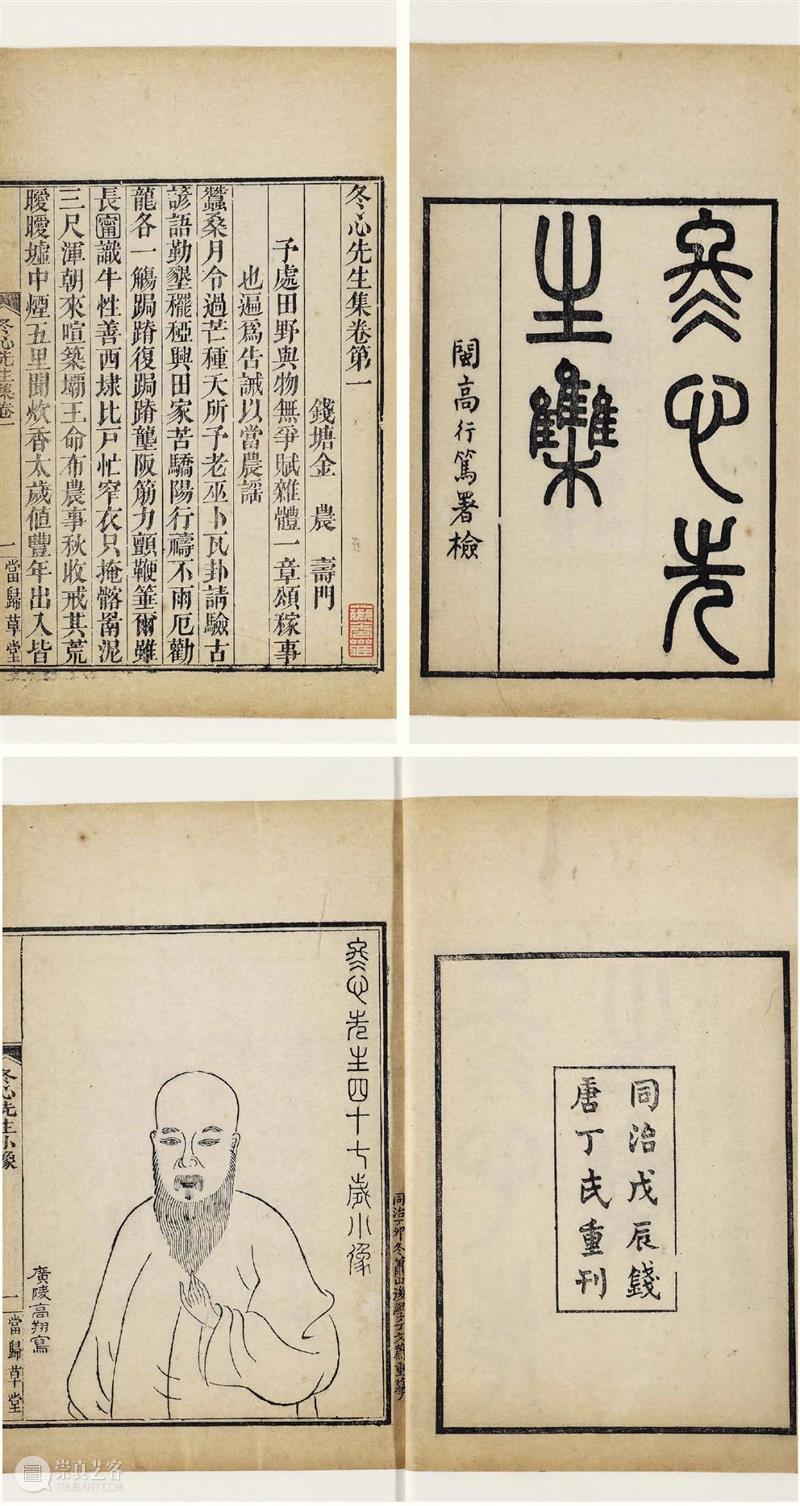 冬心先
生集
閩高行篤署檢
冬心先生集卷第一
錢塘金 農 壽門
予處田野與物無爭賦雜體一章頌稼事
也遍爲告誡以當農謡
蠶桑月令過芒種天所予老巫卜瓦卦請驗古
諺語勤墾穲稏興田家苦驕陽行禱不雨厄勸
龍各一觴跼蹐復跼蹐壟阪筋力顫鞭箠爾雖
長甯識牛性善西埭比戸忙窄衣只掩髂泥
三尺渾朝來喧築壩王命布農事秋收戒其荒
曖曖墟中煙五里聞炊香太歲値豐年出入皆
冬心先生集卷一 一 當歸草堂
同治戊辰錢
唐丁氏重刊
同治丁卯冬蕭山後學丁文蔚重摹
冬心先生四十七歲小像
廣陵高翔寫
冬心先生小像 一 當歸草堂
崇真艺客
TRUEART.COM